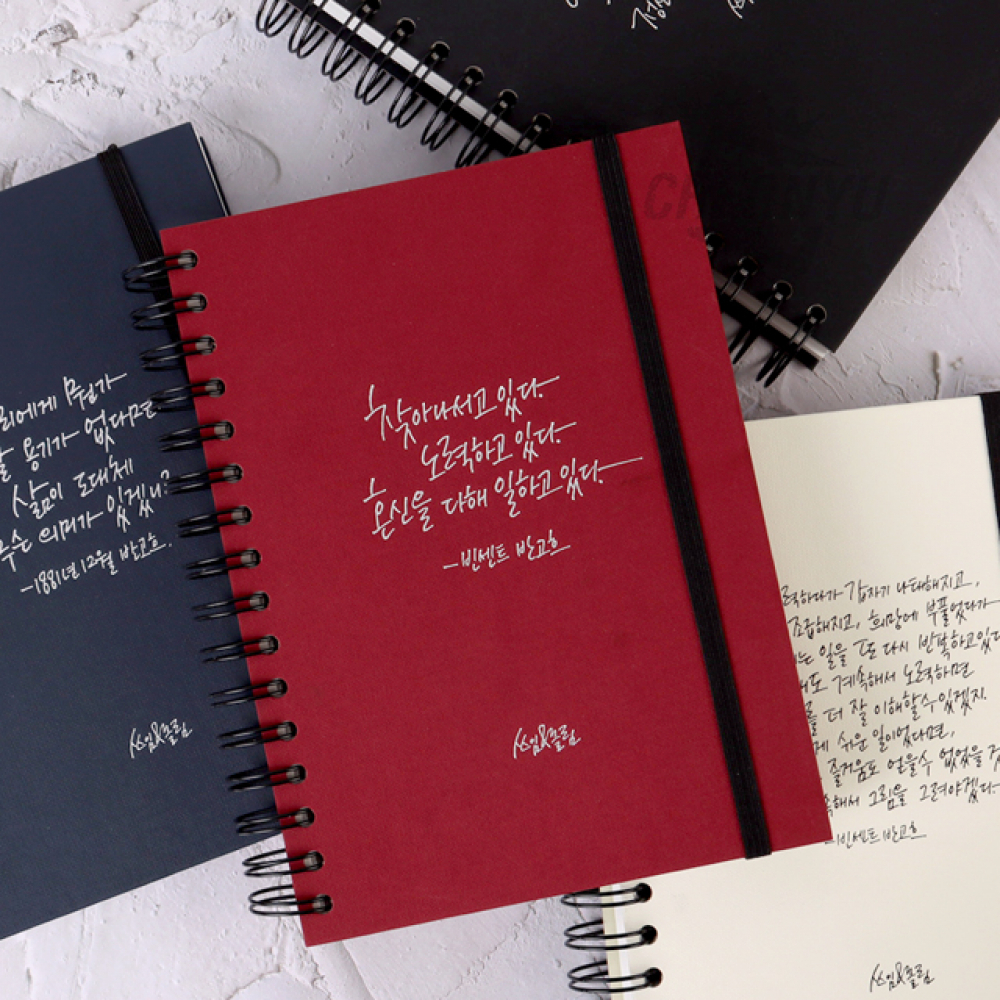 찾아나서고 있다.
노력하고 있다.
온신을 다해 일하고 있다.
-빈센트 반고흐
쓰임&홀림
리에게 뭔가
할 용기가 없다면
삶이 도대체
무슨 의미가 있겠니?
-1881년 12월 반고흐.
쓰임&홀림
노력하다가 갑자기 나태해지고,
조급해지고, 희망에 부풀었다가
는 일을 또 다시 반복하고 있다
계속해서 노력하면
더 잘 이해할 수 있겠지.
게 쉬운 일이었다면,
즐거움도 얻을 수 없었을 것
속해서 그림을 그려야겠다.
-빈센트 반고흐
쓰임&홀림